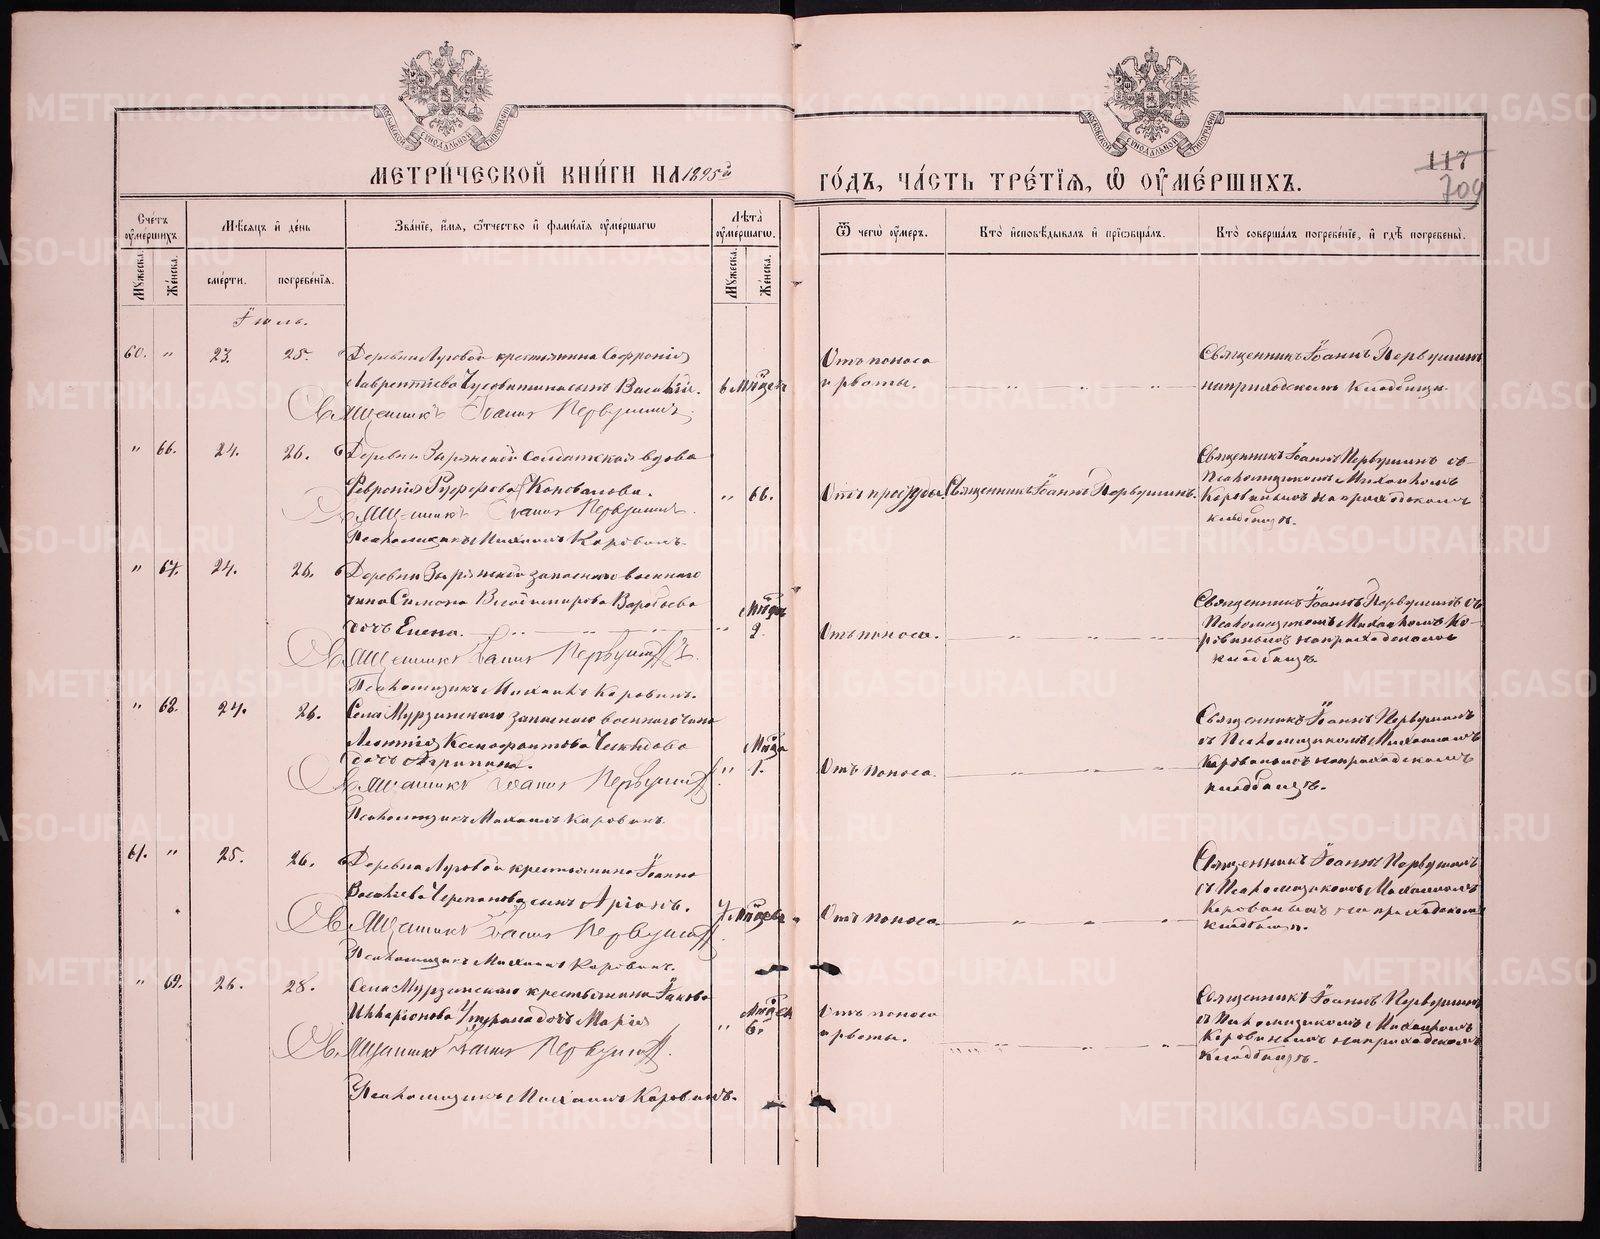 МЕТРИЧЕСКОЙ КНИГИ НА 1895й
ГОДЪ, ЧАСТЬ ТРЕТІЯ, Ѽ ОУМЕРШИХЪ.
117
709
МОСКОВСКОЙ СУНОДАЛЬНОЙ ТИПОГРАФІИ
МОСКОВСКОЙ СУНОДАЛЬНОЙ ТИПОГРАФІИ
Счетъ оумершихъ.
Мѣсяцъ и день
Званіе, имя, ѿчество и фамилія оумершагѡ
Лѣта оумершагѡ.
Ѿ чегѡ оумеръ.
Кто исповѣдывалъ и пріобщалъ.
Кто совершалъ погребеніе, и гдѣ погребены.
Мужеска.
Женска.
смерти.
погребенія.
Мужеска.
Женска.
Іюль.
60. " 23. 25.
Деревни Луговой крестьянина Софронія
Лаврентіева Чусовитина сынъ Василій.
6 Мѣсец
Отъ поноса
и рвоты.
Священникъ Іоаннъ Первушинъ
на приходскомъ кладбищѣ.
Священникъ Іоаннъ Первушинъ
" 66. 24. 26.
Деревни Зырянской солдатская вдова
Феврония Коновалова.
" 66.
Отъ простуды.
Священникъ Іоаннъ Первушинъ.
Священникъ Іоаннъ Первушинъ съ
Псаломщикомъ Михаиломъ
Коровинымъ на приходскомъ
кладбищѣ.
Священникъ Іоаннъ Первушинъ.
Псаломщикъ Михаилъ Коровинъ.
" 67. 24. 26.
Деревни Зырянской запаснаго военнаго
чина Симона Владимирова Воробьева
дочь Елена.
" 2.
Отъ поноса.
Священникъ Іоаннъ Первушинъ съ
Псаломщикомъ Михаиломъ Ко-
ровинымъ на приходскомъ
кладбищѣ.
Священникъ Іоаннъ Первушинъ.
Псаломщикъ Михаилъ Коровинъ.
" 68. 24. 26.
Села Мурзинскаго запаснаго военнаго чина
Леонтія Ксенофонтова
дочь Агрипина.
" 1.
Отъ поноса.
Священникъ Іоаннъ Первушинъ
съ Псаломщикомъ Михаиломъ
Коровинымъ на приходскомъ
кладбищѣ.
Священникъ Іоаннъ Первушинъ
Псаломщикъ Михаилъ Коровинъ.
61. " 25. 26.
Деревни Луговой крестьянина Іоанна
Василіева Черепанова сынъ
Отъ поноса.
Священникъ Іоаннъ Первушинъ
съ Псаломщикомъ Михаиломъ
Коровинымъ на приходскомъ
кладбищѣ.
Священникъ Іоаннъ Первушинъ
Псаломщикъ Михаилъ Коровинъ.
" 69. 26. 28.
Села Мурзинскаго крестьянина Іакова
Илларіонова дочь Марія
" 6.
Отъ поноса
и рвоты.
Священникъ Іоаннъ Первушинъ
съ Псаломщикомъ Михаиломъ
Коровинымъ на приходскомъ
кладбищѣ.
Священникъ Іоаннъ Первушинъ.
Псаломщикъ Михаилъ Коровинъ.
METRIKI.GASO-URAL.RU